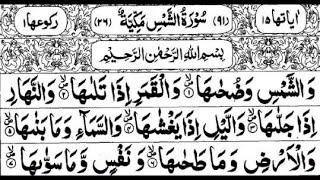 اٰیاتها ۱۵ (۹۱) سُوْرَةُ الشَّمْسِ مَكِّيَّةٌ (۲۶) رکوعها ۱
بِسْمِ اللهِ الرَّحْمٰنِ الرَّحِيْمِ
وَالشَّمْسِ وَضُحٰىهَا ۱ وَالْقَمَرِ اِذَا تَلٰىهَا ۲ وَالنَّهَارِ
اِذَا جَلّٰىهَا ۳ وَالَّيْلِ اِذَا يَغْشٰىهَا ۴ وَالسَّمَآءِ وَمَا بَنٰىهَا ۵
وَالْاَرْضِ وَمَا طَحٰىهَا ۶ وَنَفْسٍ وَّمَا سَوّٰىهَا ۷